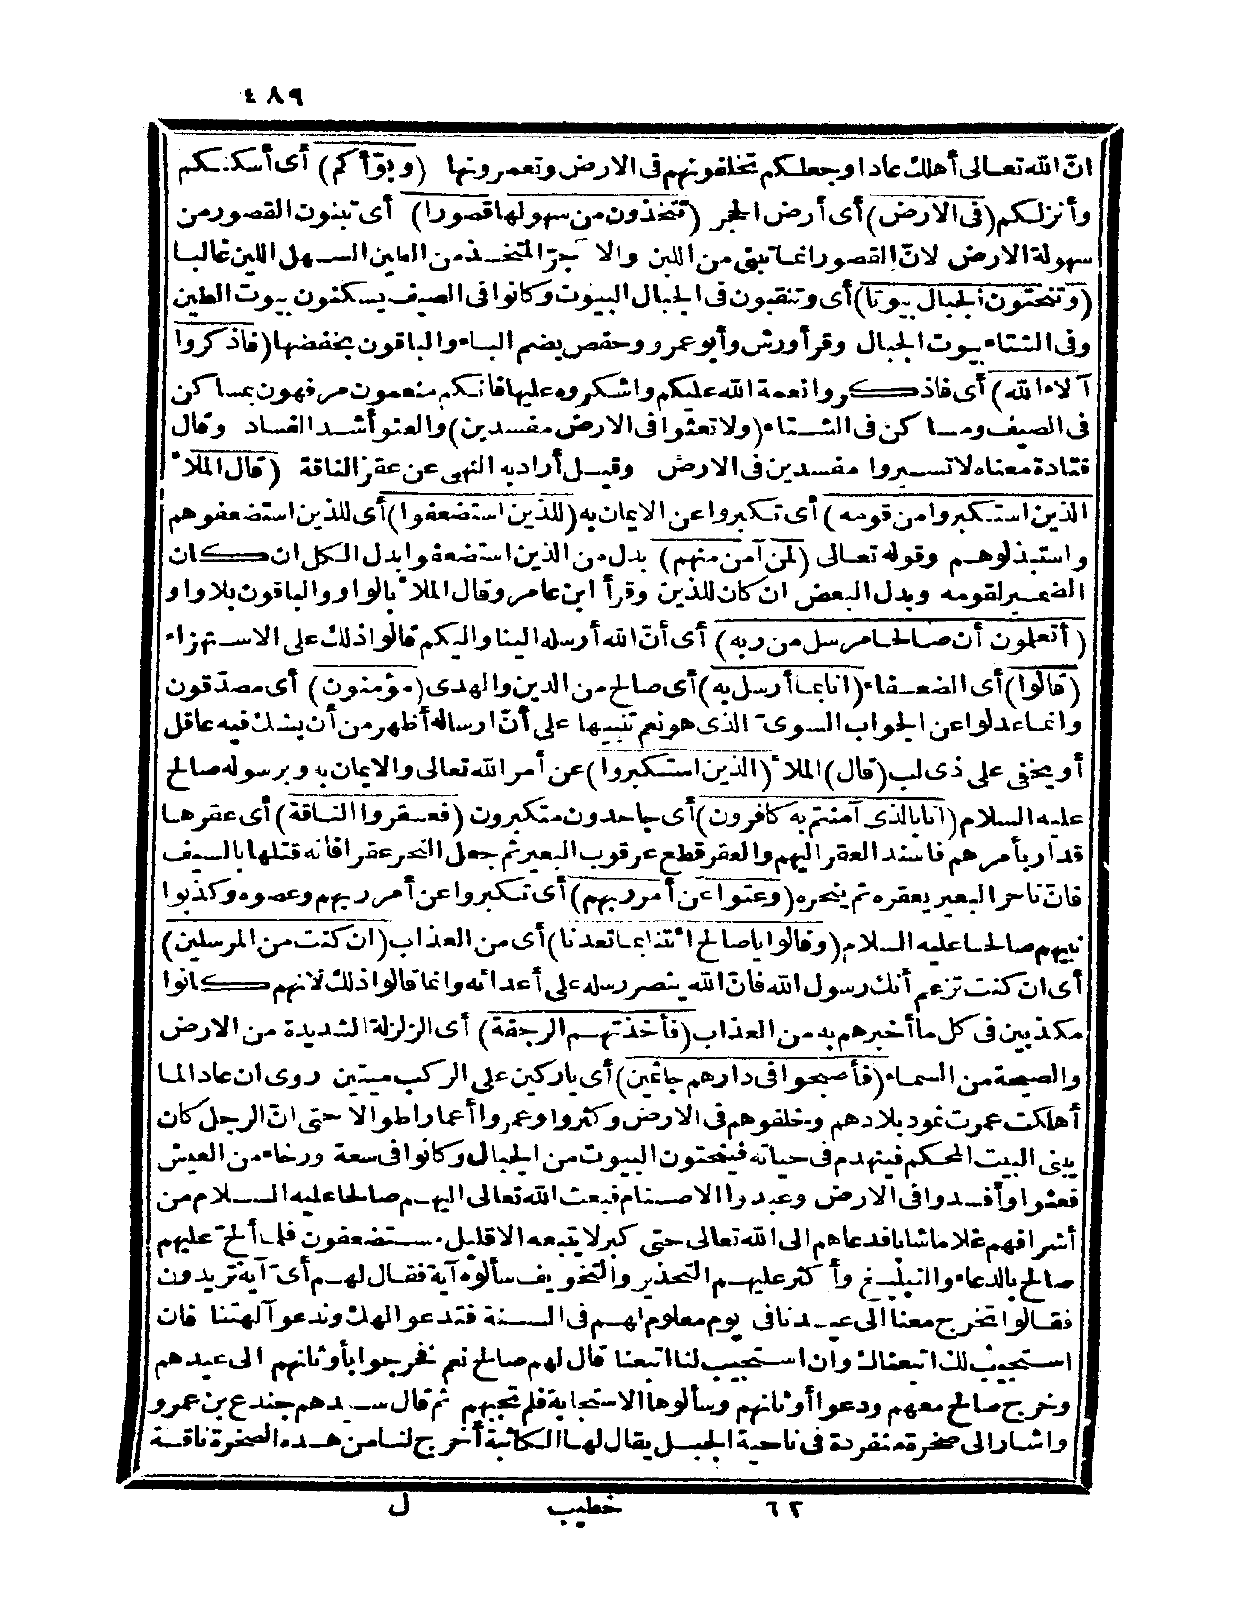 ٤٨٩
انّ الله تعالى أهلك عادا وجعلكم تخلفونهم فى الارض وتعمرونها (وبوّأكم) أى أسكنكم
وأنزلكم (فى الارض) أى أرض الحجر (تتخذون من سهولها قصورا) أى تبنون القصور من
سهولة الارض لانّ القصور انما تبنى من اللبن والآجرّ المتخذ من الطين السهل اللين غالبا
(وتنحتون الجبال بيوتا) أى وتنقبون فى الجبال البيوت وكانوا فى الصيف يسكنون بيوت الطين
وفى الشتاء بيوت الجبال وقرأ ورش وأبو عمرو وحفص بضم الباء والباقون بخفضها (فاذكروا
آلاء الله) أى فاذكروا نعمة الله عليكم واشكروه عليها فانكم منعمون مرفهون بمساكن
فى الصيف ومساكن فى الشتاء (ولا تعثوا فى الارض مفسدين) والعثو أشد الفساد وقال
قتادة معناه لا تسيروا مفسدين فى الارض وقيل أراد به النهى عن عقر الناقة (قال الملأ
الذين استكبروا من قومه) أى تكبروا عن الايمان به (للذين استضعفوا) أى للذين استضعفوهم
واستبذلوهم وقوله تعالى (لمن آمن منهم) بدل من الذين استضعفوا بدل الكل ان كان
الضمير لقومه وبدل البعض ان كان للذين وقرأ ابن عامر وقال الملأ بالواو والباقون بلا واو
(أتعلمون أن صالحا مرسل من ربه) أى أنّ الله أرسله الينا واليكم قالوا ذلك على الاستهزاء
(قالوا) أى الضعفاء (انا بما أرسل به) أى صالح من الدين والهدى (مؤمنون) أى مصدّقون
وانما عدلوا عن الجواب السوىّ الذى هو نعم تنبيها على أنّ ارساله أظهر من أن يشك فيه عاقل
أو يخفى على ذى لب (قال) الملأ (الذين استكبروا) عن أمر الله تعالى والايمان به وبرسوله صالح
عليه السلام (انا بالذى آمنتم به كافرون) أى جاحدون متكبرون (فعقروا الناقة) أى عقرها
قدار بأمرهم فاسند العقر اليهم والعقر قطع عرقوب البعير ثم جعل النحر عقرا فانه قتلها بالسيف
فانّ ناحر البعير يعقره ثم ينحره (وعتوا عن أمر ربهم) أى تكبروا عن أمر ربهم وعصوه وكذبوا
نبيهم صالحا عليه السلام (وقالوا يا صالح ائتنا بما تعدنا) أى من العذاب (ان كنت من المرسلين)
أى ان كنت تزعم أنك رسول الله فانّ الله ينصر رسله على أعدائه وانما قالوا ذلك لانهم كانوا
مكذبين فى كل ما أخبرهم به من العذاب (فأخذتهم الرجفة) أى الزلزلة الشديدة من الارض
والصيحة من السماء (فأصبحوا فى دارهم جاثمين) أى باركين على الركب ميتين روى ان عادا لما
أهلكت عمرت ثمود بلادهم وخلفوهم فى الارض وكثروا وعمروا أعمارا طوالا حتى انّ الرجل كان
يبنى البيت المحكم فينهدم فى حياته فينحتون البيوت من الجبال وكانوا فى سعة ورخاء من العيش
فعثوا وأفسدوا فى الارض وعبدوا الاصنام فبعث الله تعالى اليهم صالحا عليه السلام من
أشرافهم غلاما شابا فدعاهم الى الله تعالى حتى كبر لا يتبعه الا قليل مستضعفون فلما ألحّ عليهم
صالح بالدعاء والتبليغ وأكثر عليهم التحذير والتخويف سألوه آية فقال لهم أىّ آية تريدون
فقالوا تخرج معنا الى عيدنا فى يوم معلوم لهم فى السنة فتدعو الهك وندعو آلهتنا فان
استجيب لك اتبعناك وان استجيب لنا اتبعتنا قال لهم صالح نعم فخرجوا بأوثانهم الى عيدهم
وخرج صالح معهم ودعوا أوثانهم وسألوها الاستجابة فلم تجبهم ثم قال سيدهم جندع بن عمرو
واشار الى صخرة منفردة فى ناحية الجبل يقال لها الكاثبة أخرج لنا من هذه الصخرة ناقة
٦٢ خطيب ل